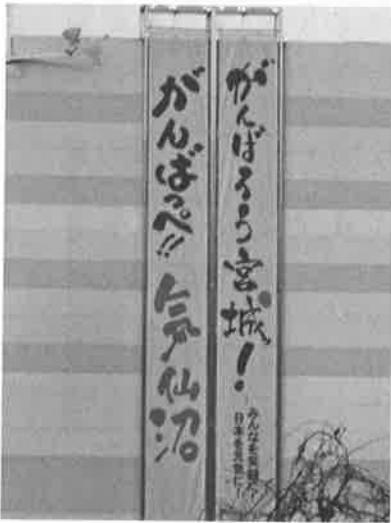 がんばろう宮城!
みんなを笑顔に!
日本を元気に!
がんばっぺ!!気仙沼